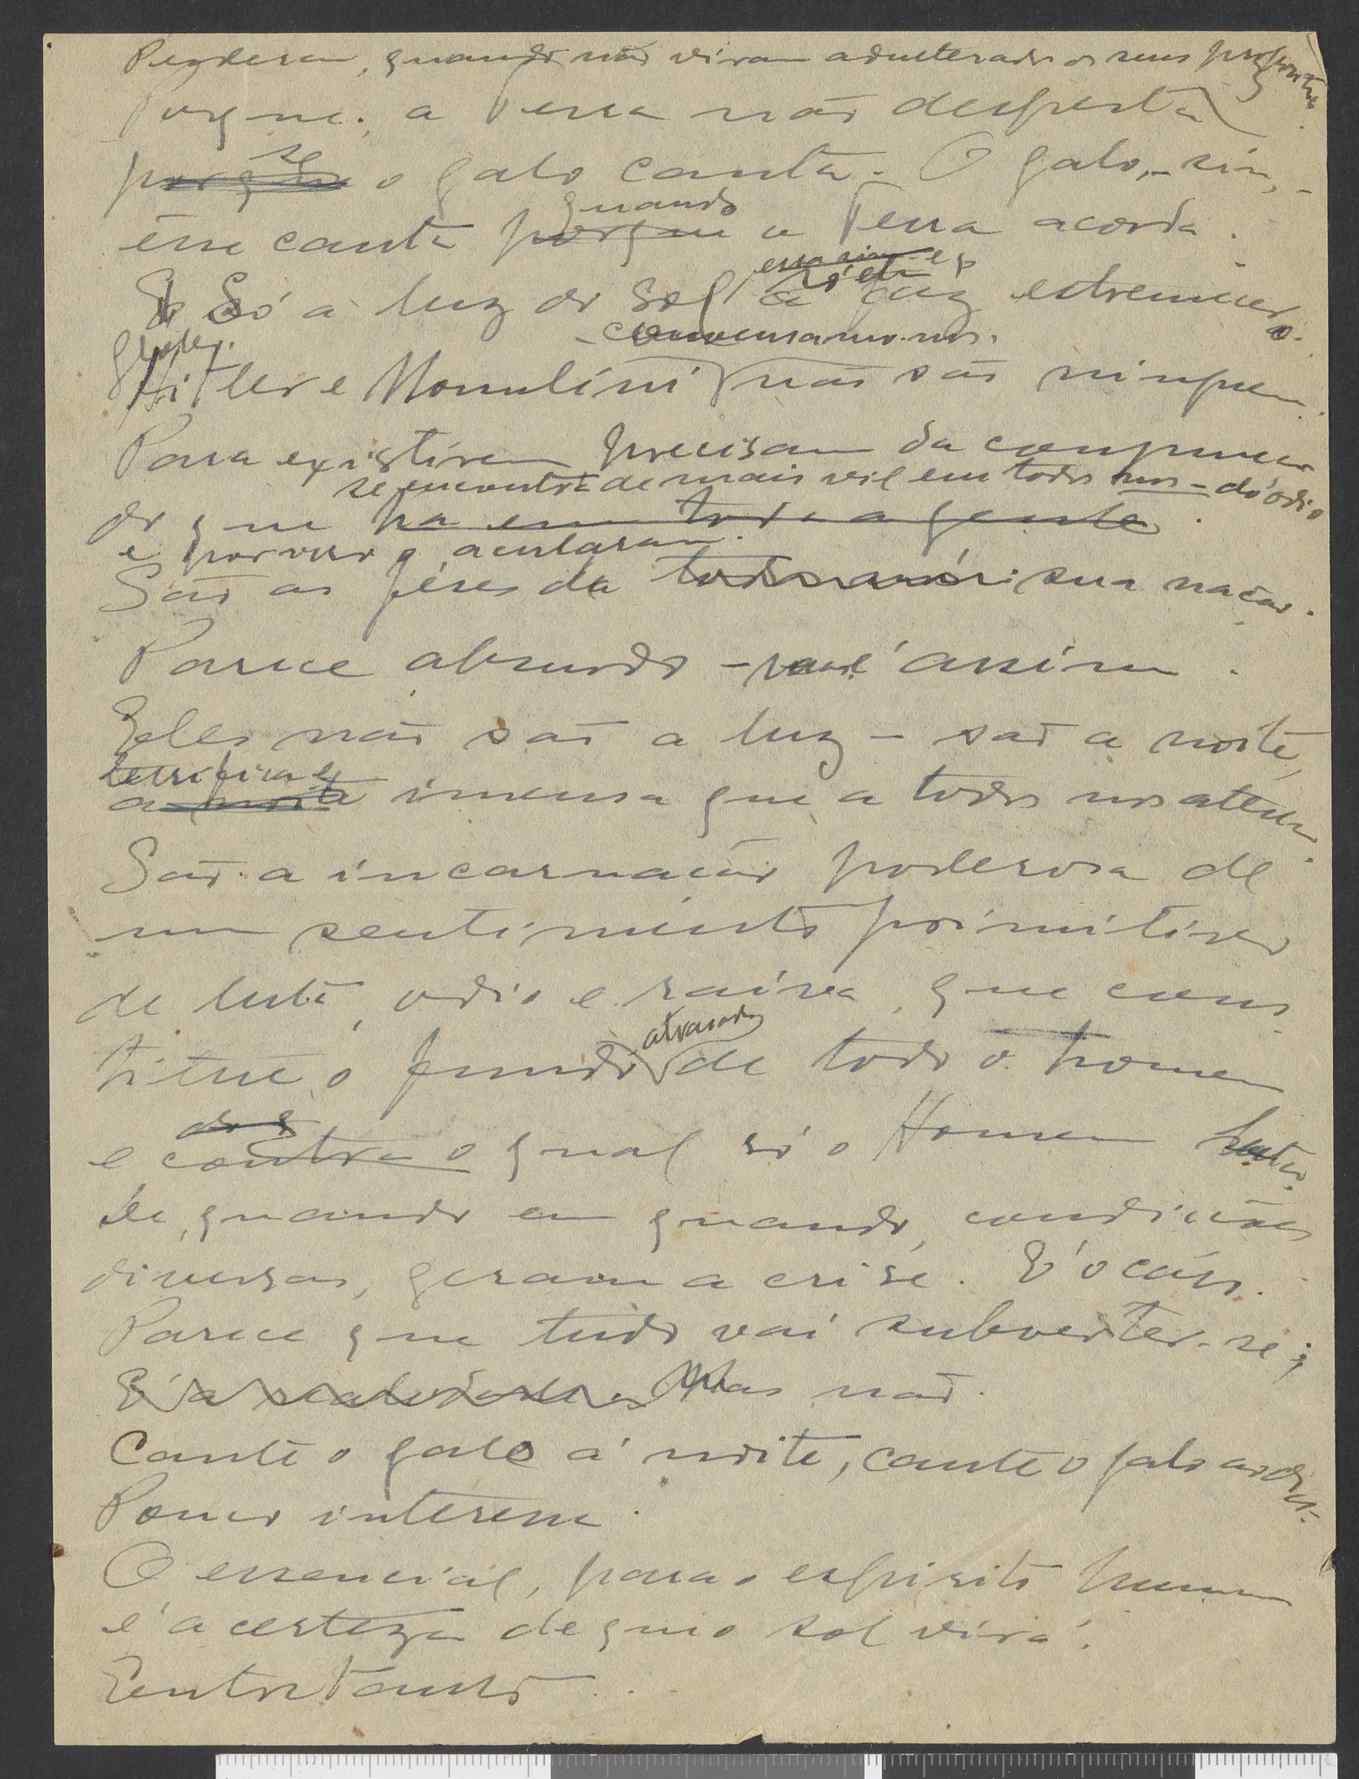 Perderam, quando não viram adulterados os seus propositos.
Porque, a Terra não desperta
se
porque o galo canta. O galo, - sim, -
quando
êsse canta porque a Terra acorda.
essa sim é q
Só a luz do Sol a faz estremecer.
- convençamo-nos.
Hitler e Mussulini não são ninguem.
Para existirem precisam da
se encontra de mais vil em todos nós - do ódio
do que ha em toda a gente.
e por isso o aculáram.
São as fézes da sua nação.
Parece absurdo - mas é assim.
Eles não são a luz - são a noite,
terrifica e
a noite imensa que a todos nos aterra.
São a incarnação poderosa de
um sentimento primitivo
de luta, odio e raiva, que cons-
atrasado
titue o fundo de todo o homem
do q
e contra o qual só o Homem luta.
De quando em quando, condições
diversas, geram a crise. E' o cáos.
Parece que tudo vai subverter-se;
Mas não.
Cante o galo á noite, cante o galo ao dia.
Pouco interessa.
O essencial, para o espirito humano
é a certeza de que o sol virá.
Entretanto...